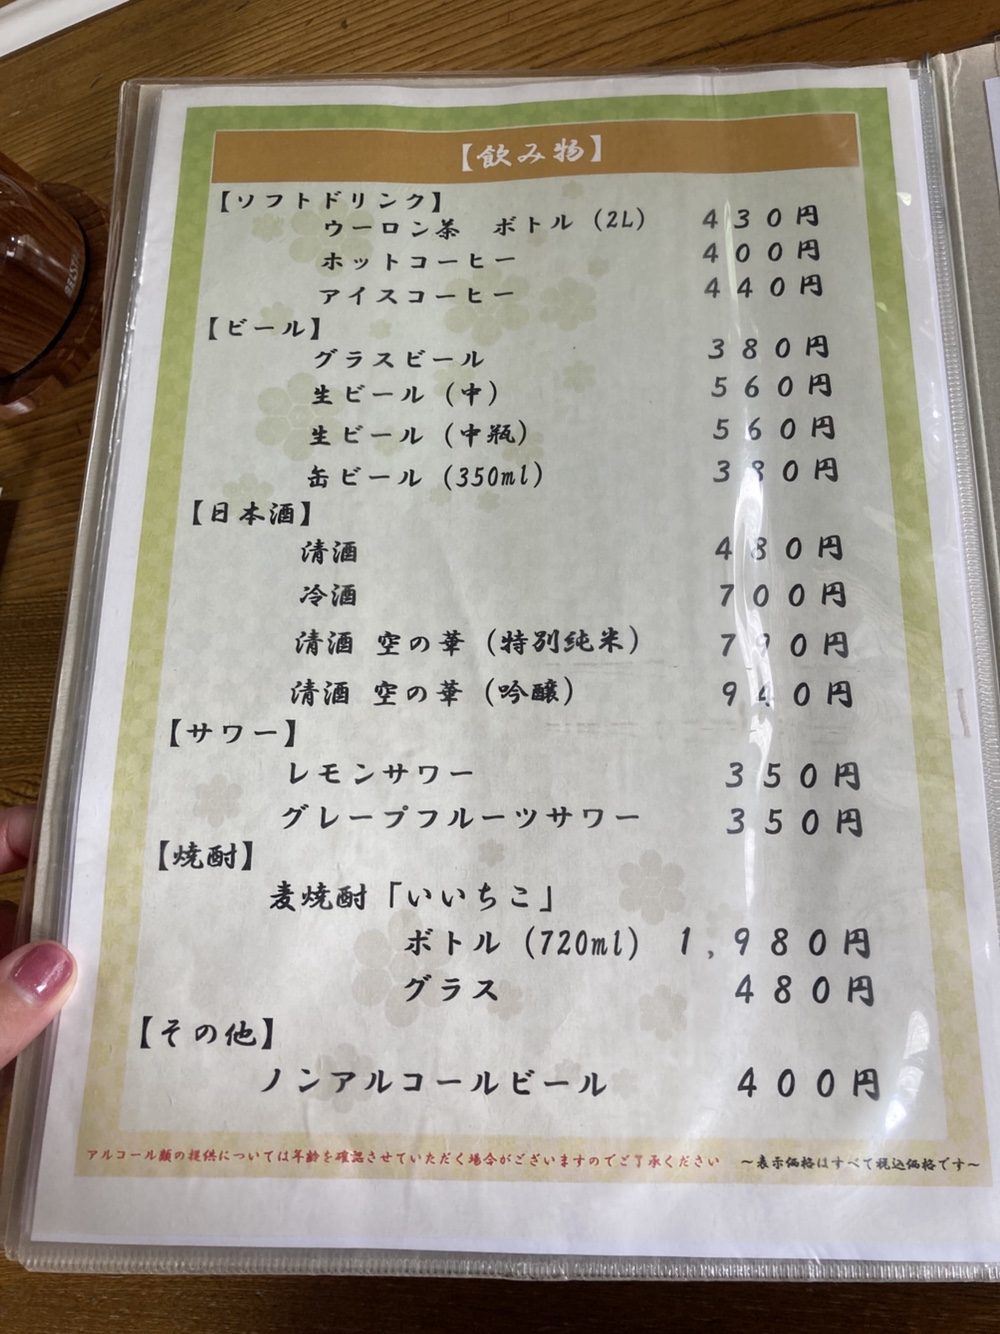 【飲み物】
【ソフトドリンク】
ウーロン茶　ボトル（2L） 430円
ホットコーヒー 400円
アイスコーヒー 440円
【ビール】
グラスビール 380円
生ビール（中） 560円
生ビール（中瓶） 560円
缶ビール（350ml） 380円
【日本酒】
清酒 480円
冷酒 700円
清酒 空の華（特別純米） 790円
清酒 空の華（吟醸） 940円
【サワー】
レモンサワー 350円
グレープフルーツサワー 350円
【焼酎】
麦焼酎「いいちこ」
ボトル（720ml） 1,980円
グラス 480円
【その他】
ノンアルコールビール 400円
アルコール類の提供については年齢を確認させていただく場合がございますのでご了承ください　～表示価格はすべて税込価格です～